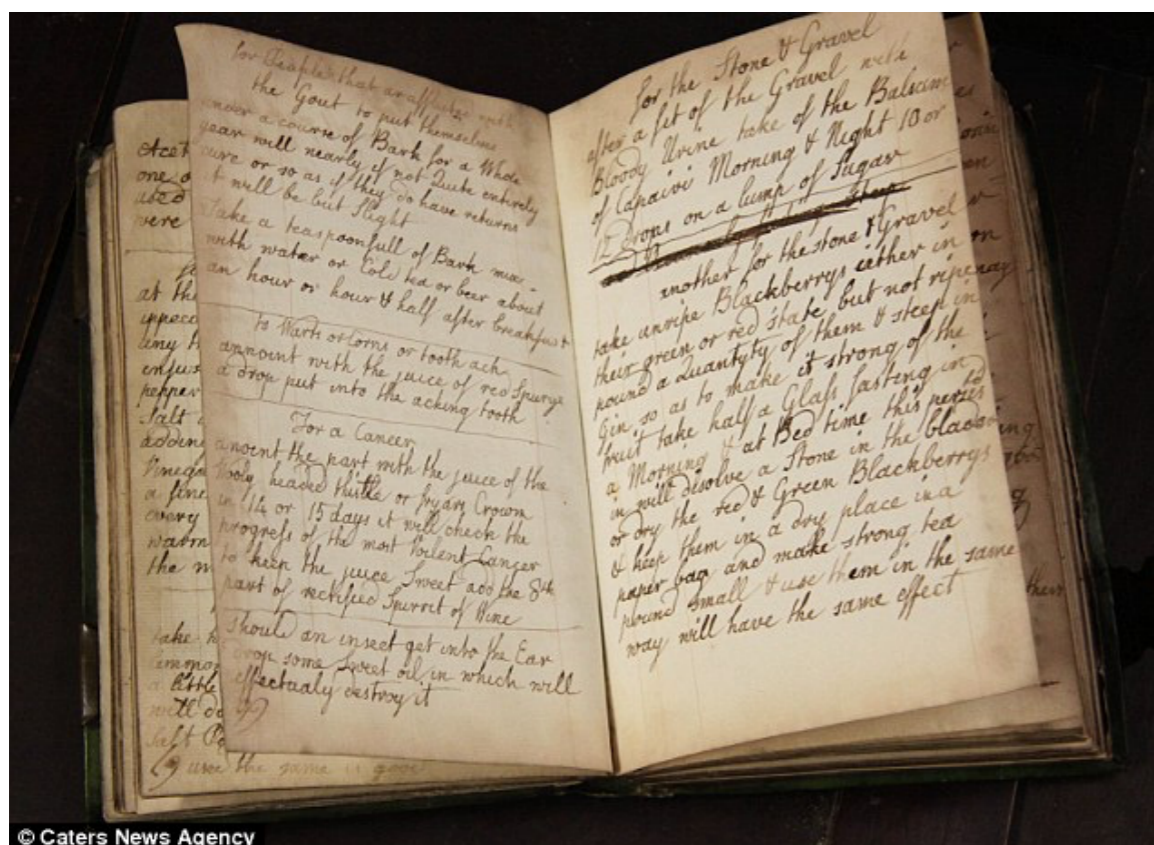 for People that are afflicted with
the Gout to put themselves
under a course of Bark for a Whole
year will nearly if not Quite entirely
cure or so as if they do have returns
it will be but Slight
Take a teaspoonfull of Bark mix-
with water or Cold tea or beer about
an hour or hour & half after breakfast
to Warts or Corns or tooth ach
annoint with the juice of red Spurge
a drop put into the acking tooth
For a Cancer
anoint the part with the juice of the
Wooly headed thistle or fryars Crown
in 14 or 15 days it will check the
progress of the most Violent Cancer
to keep the juice Sweet add the 8th
part of rectified Spirrit of Wine
should an insect get into the Ear
drop some Sweet oil in which will
effectualy destroy it
for the Stone & Gravel
after a fit of the Gravel with
Bloody Urine take of the Balsam
of Capaivi Morning & Night 10 or
12 Drops on a lump of Sugar
another for the stone & Gravel
take unripe Blackberrys either in
their green or red state but not ripe
pound a Quantyty of them & steep in
Gin so as to make it strong of the
fruit take half a Glass fasting in
a Morning & at Bed time this persisted
in will disolve a Stone in the bladder
or dry the red & Green Blackberrys
& keep them in a dry place in a
paper bag and make strong tea
pound small & use them in the same
way will have the same effect
Acet
one o
used
were
at th
any t
infus
pepper
Salt
adding
Vinega
a fine
every
warm
the m
take
a little
well do
Salt
use the same is good
© Caters News Agency